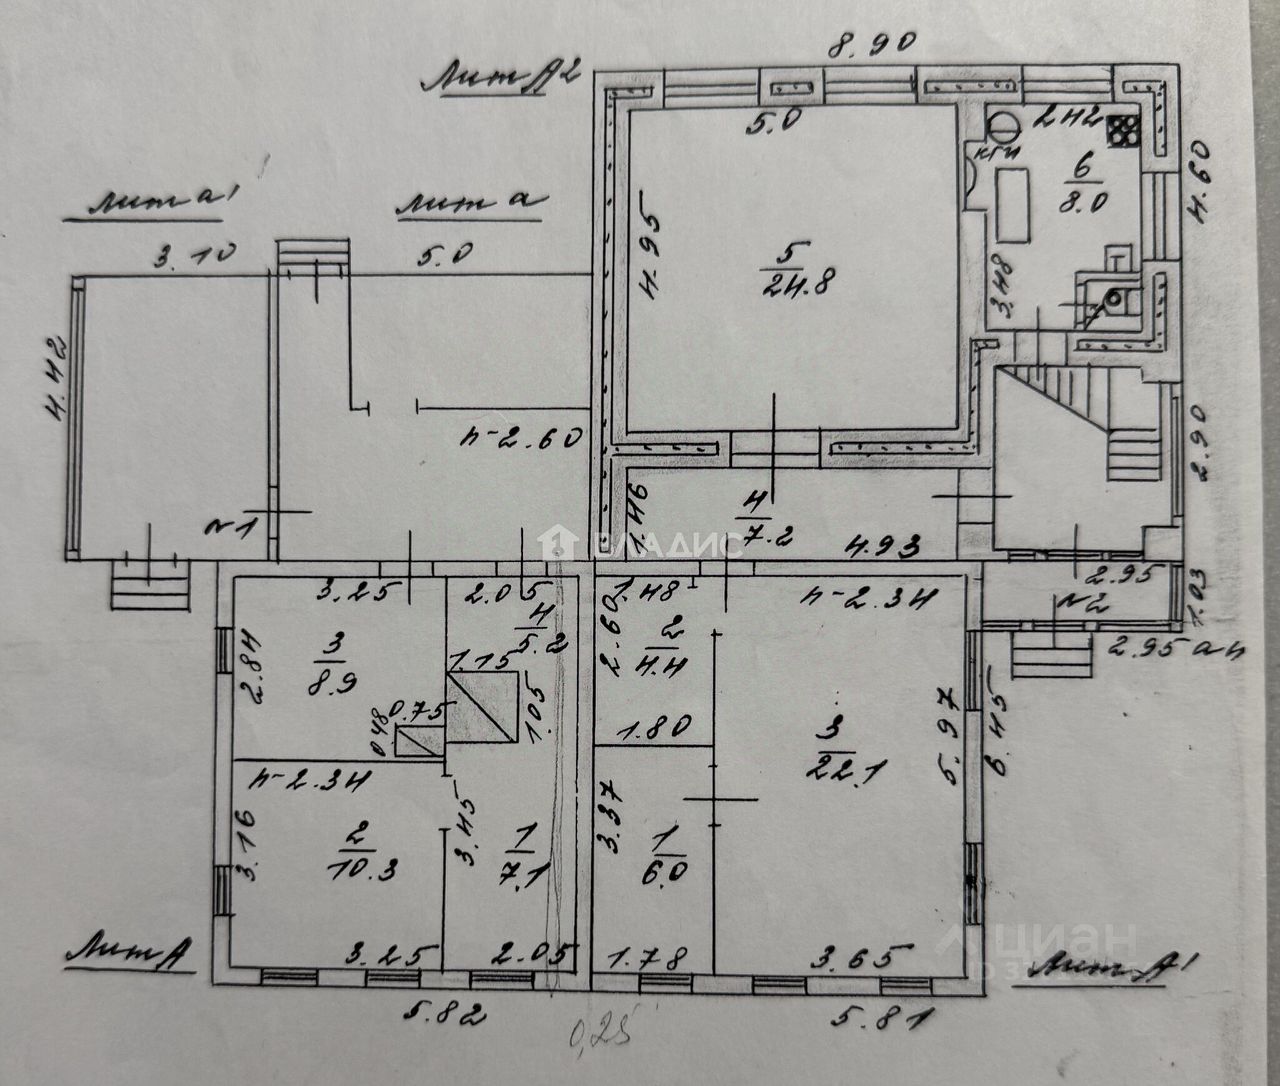 8.90
Лит А2
5.0
2.42
кгн
6
8.0
4.60
Лит а1
Лит а
3.10
5.0
4.95
5
24.8
3.48
4.42
h-2.60
2.90
№1
1.46
4
7.2
4.93
ВЛАДИС
3.25
2.05
4
5.2
1.48
h-2.34
2.95
№2
1.03
2.95 а4
2.84
3
8.9
1.15
1.05
2.60
2
4.4
0.48
0.75
1.80
3
22.1
5.97
6.45
h-2.34
3.16
2
10.3
3.45
1
7.1
3.37
1
6.0
Лит А
3.25
2.05
1.78
3.65
циан
Лит А1
5.82
0,25
5.81